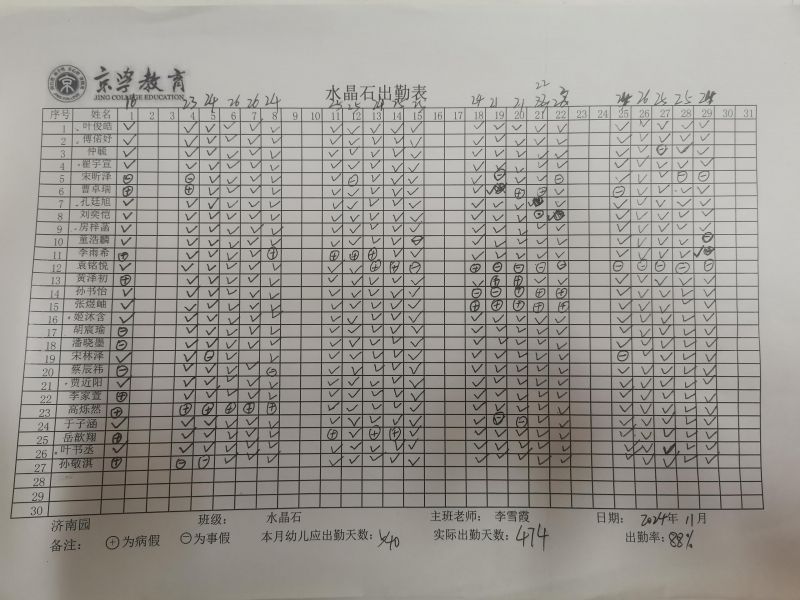 京学教育
JING COLLEGE EDUCATION
水晶石出勤表
序号 姓名 1 2 3 4 5 6 7 8 9 10 11 12 13 14 15 16 17 18 19 20 21 22 23 24 25 26 27 28 29 30 31
1 叶俊皓
2 傅偌好
3 仲毓
4 翟宇宣
5 宋昕泽
6 曹卓瑞
7 孔廷旭
8 刘奕恺
9 房梓菡
10 董浩麟
11 李雨希
12 袁铭悦
13 黄泽初
14 孙书怡
15 张煜岫
16 姬沐含
17 胡宸瑜
18 潘晓墨
19 宋林泽
20 蔡辰祎
21 贾近阳
22 李家萱
23 高烁然
24 于子涵
25 岳歆翔
26 叶书丞
27 孙敬淇
28
29
30
济南园 班级: 水晶石 主班老师: 李雪霞 日期: 2024年11月
备注: ⊕为病假 ⊖为事假 本月幼儿应出勤天数: 实际出勤天数:474 出勤率:88%